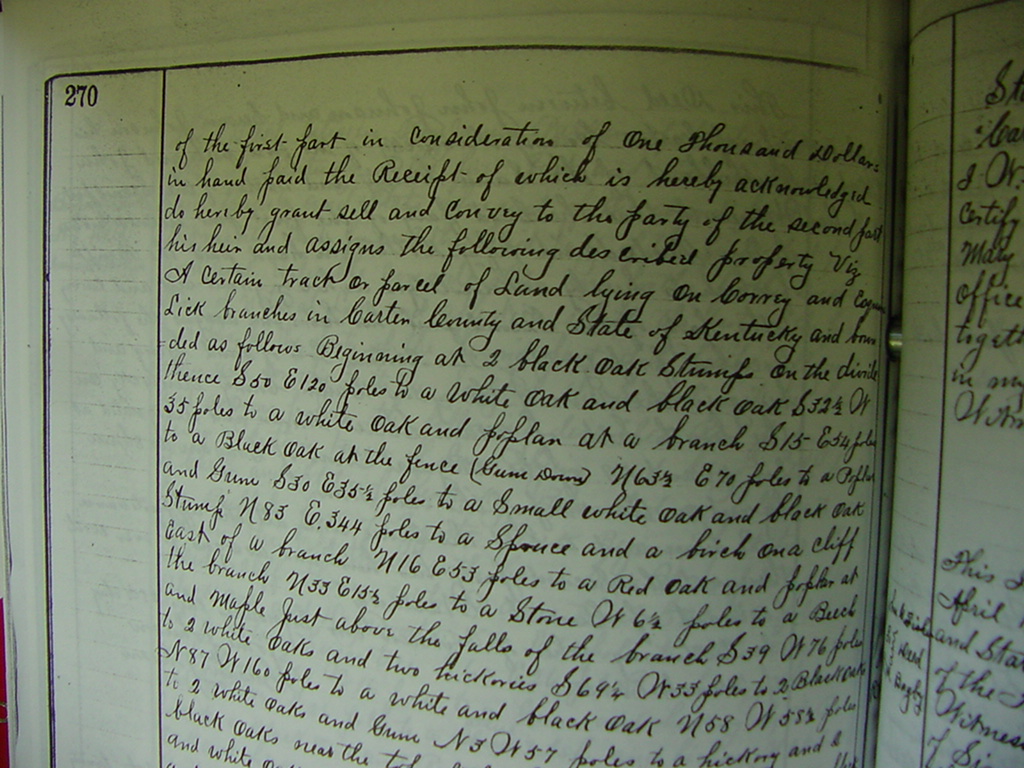 270
of the first part in consideration of One Thousand Dollars
in hand paid the Receipt of which is hereby acknowledgid
do hereby grant sell and convey to the party of the second part
his heir and assigns the following described property Viz
A certain track or parcel of Land lying on Correy and
Lick branches in Carter County and State of Kentucky and boun
=ded as follows Beginning at 2 black oak Stumps on the divide
thence S50 E120 poles to a white oak and black oak S32½ W
35 poles to a white oak and poplan at a branch S15 E54 poles
to a Black oak at the fence (Gum Down) N63½ E70 poles to a Poplar
and Gum S30 E35½ poles to a Small white oak and black oak
Stump N83 E,344 poles to a Spruce and a birch on a cliff
East of a branch N16 E53 poles to a Red oak and poplar at
the branch N33 E15½ poles to a Stone W6½ poles to a Beech
and Maple Just above the falls of the branch S39 W76 poles
to 2 white oaks and two hickories S69¼ W33 poles to 2 Black oaks
N87 W160 poles to a white and black oak N58 W58½ poles
to 2 white oaks and Gum N3 W57 poles to a hickory and 2
black oaks near the
and white
J W.
Certify
Mary
Office
togeth
in my
Witn
This
April
and Sta
of the
Witness